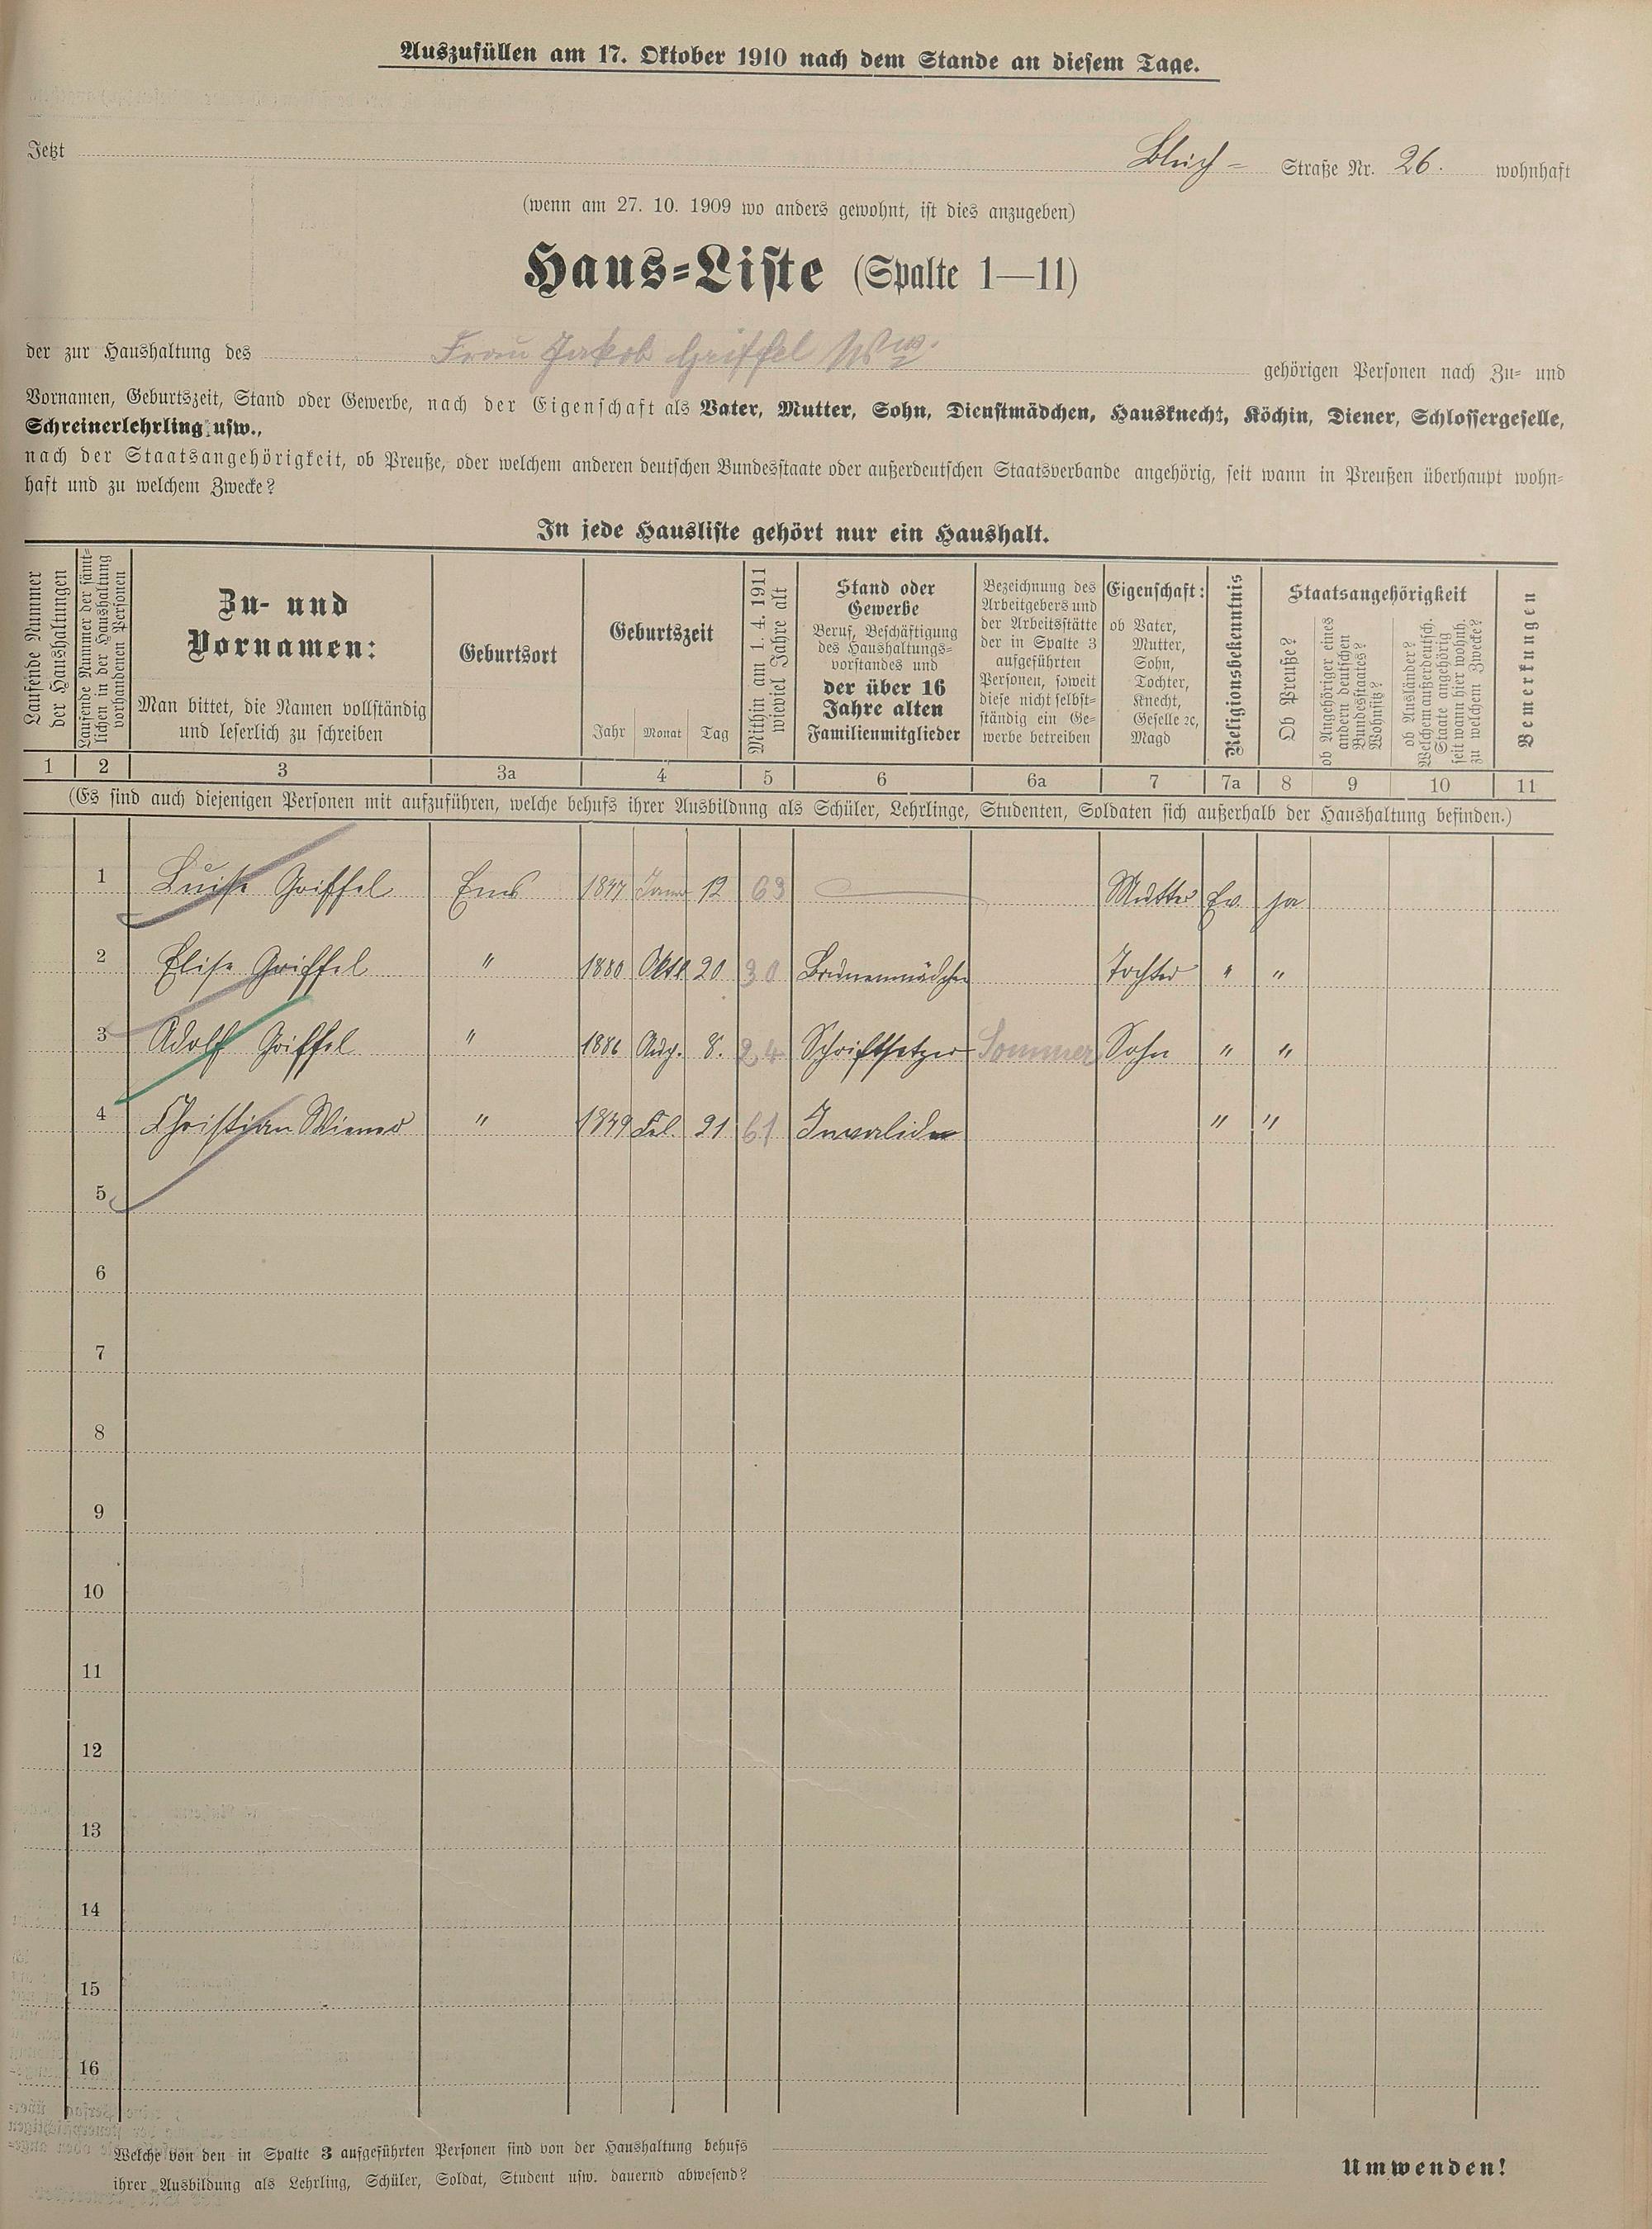 Auszufüllen am 17. Oktober 1910 nach dem Stande an diesem Tage.
Jetzt Bleich= Straße Nr. 26. wohnhaft
(wenn am 27. 10. 1909 wo anders gewohnt, ist dies anzugeben)
Haus=Liste (Spalte 1—11)
der zur Haushaltung des Frau Jakob Griffel Ww. gehörigen Personen nach Zu= und
Vornamen, Geburtszeit, Stand oder Gewerbe, nach der Eigenschaft als Vater, Mutter, Sohn, Dienstmädchen, Hausknecht, Köchin, Diener, Schlossergeselle,
Schreinerlehrling usw.,
nach der Staatsangehörigkeit, ob Preuße, oder welchem anderen deutschen Bundesstaate oder außerdeutschen Staatsverbande angehörig, seit wann in Preußen überhaupt wohn=
haft und zu welchem Zwecke?
In jede Hausliste gehört nur ein Haushalt.
Laufende Nummer
der Haushaltungen
Laufende Nummer der sämt=
lichen in der Haushaltung
vorhandenen Personen
Zu- und
Vornamen:
Man bittet, die Namen vollständig
und leserlich zu schreiben
Geburtsort
Geburtszeit
Jahr Monat Tag
Mithin am 1. 4. 1911
wieviel Jahre alt
Stand oder
Gewerbe
Beruf, Beschäftigung
des Haushaltungs=
vorstandes und
der über 16
Jahre alten
Familienmitglieder
Bezeichnung des
Arbeitgebers und
der Arbeitsstätte
der in Spalte 3
aufgeführten
Personen, soweit
diese nicht selbst=
ständig ein Ge=
werbe betreiben
Eigenschaft:
ob Vater,
Mutter,
Sohn,
Tochter,
Knecht,
Geselle ec,
Magd
Religionsbekenntnis
Staatsangehörigkeit
Ob Preuße?
ob Angehöriger eines
andern deutschen
Bundesstaates?
Wohnsitz?
ob Ausländer?
Welchem außerdeutsch.
Staate angehörig
seit wann hier wohnh.
zu welchem Zwecke?
Bemerkungen
1 2 3 3a 4 5 6 6a 7 7a 8 9 10 11
(Es sind auch diejenigen Personen mit aufzuführen, welche behufs ihrer Ausbildung als Schüler, Lehrlinge, Studenten, Soldaten sich außerhalb der Haushaltung befinden.)
1 Luise Griffel Ems Janr 12 63 Mutter Ev. ja
2 Elise Griffel " 1880 Oktb. 20 30 Brunnenmädchen Tochter " "
3 Adolf Griffel " 1886 Aug. 8. 24 Schriftsetzer Sommer Sohn " "
4 Christian Wiemer " 1849 Feb. 21 61 Invalide " "
5
6
7
8
9
10
11
12
13
14
15
16
Welche von den in Spalte 3 aufgeführten Personen sind von der Haushaltung behufs
ihrer Ausbildung als Lehrling, Schüler, Soldat, Student usw. dauernd abwesend?
Umwenden!